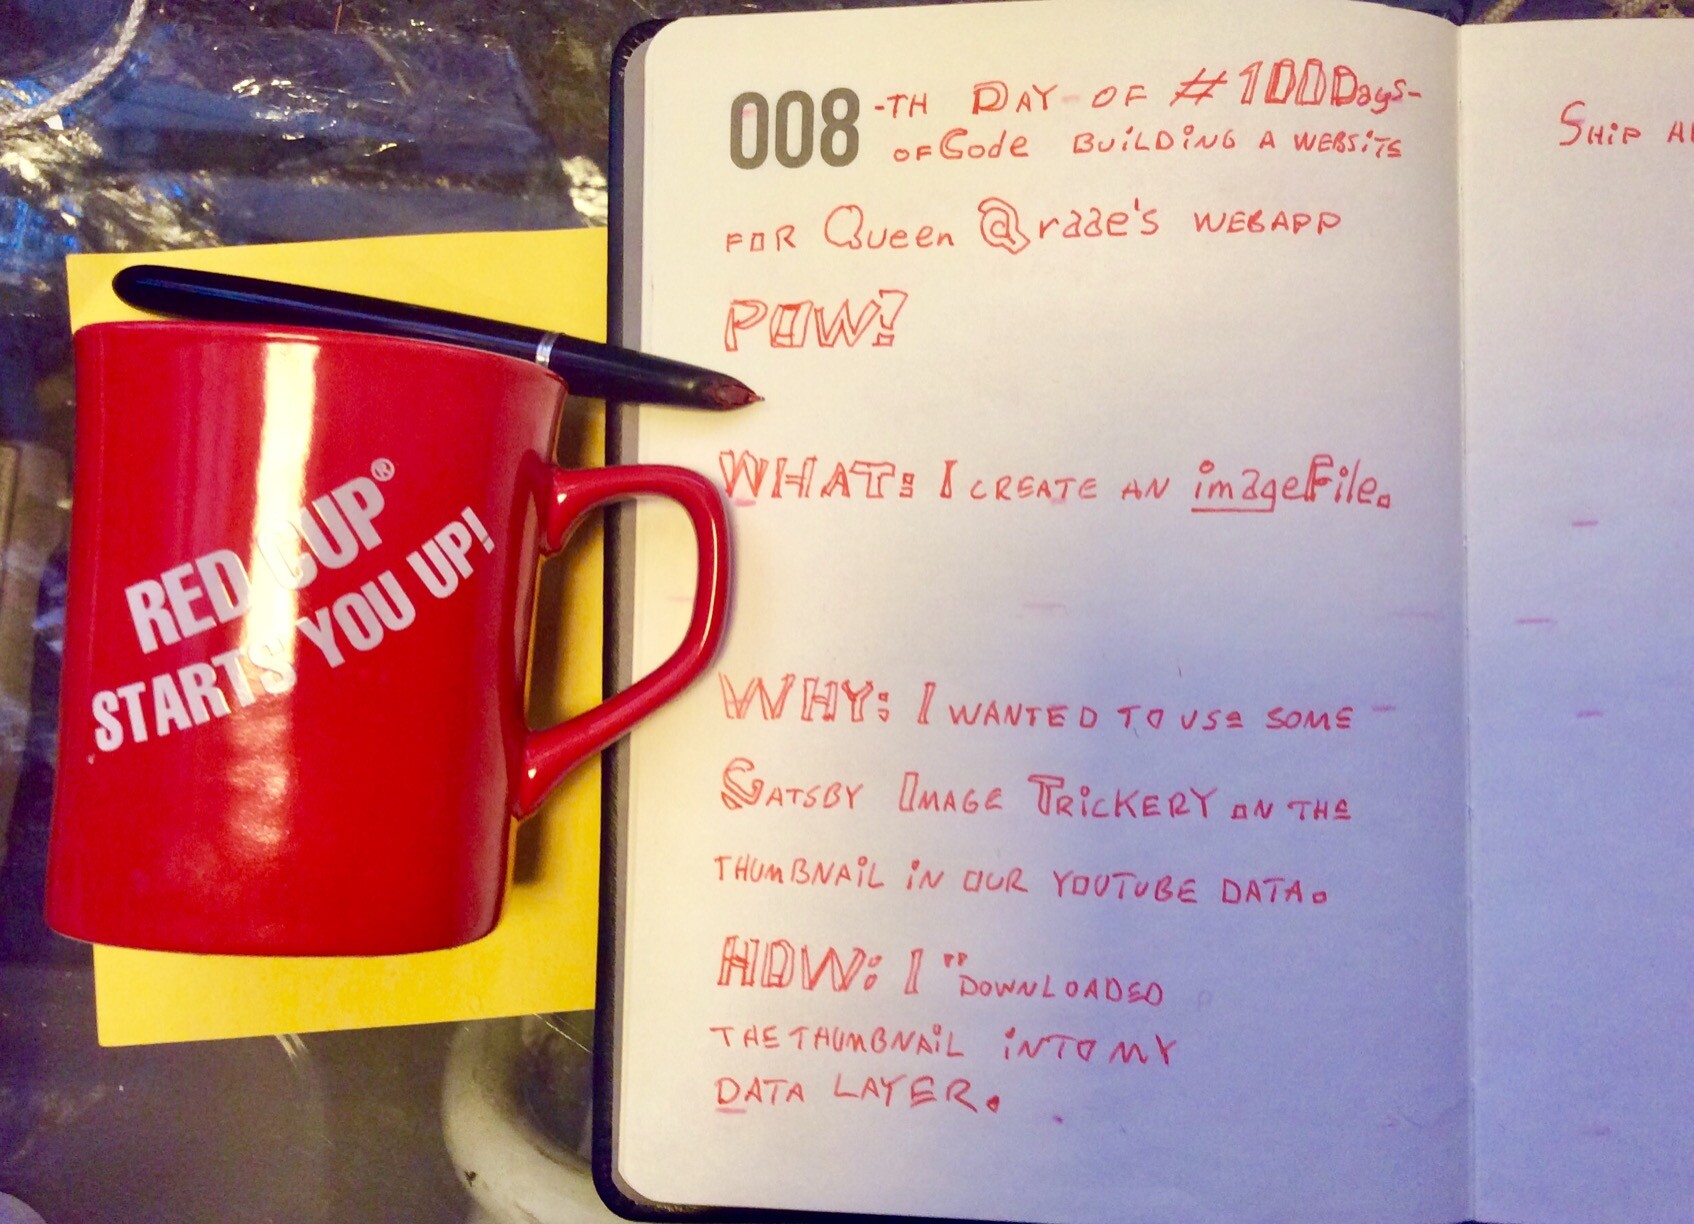 RED CUP®
STARTS YOU UP!
008-TH DAY OF #100Days-
OFCode BUILDING A WEBSITE
FOR Queen @raae's WEBAPP
POW!
WHAT: I CREATE AN imageFile.
WHY: I WANTED TO USE SOME
GATSBY IMAGE TRICKERY ON THE
THUMBNAIL IN OUR YOUTUBE DATA.
HOW: I "DOWNLOADED
THE THUMBNAIL INTO MY
DATA LAYER.
SHIP